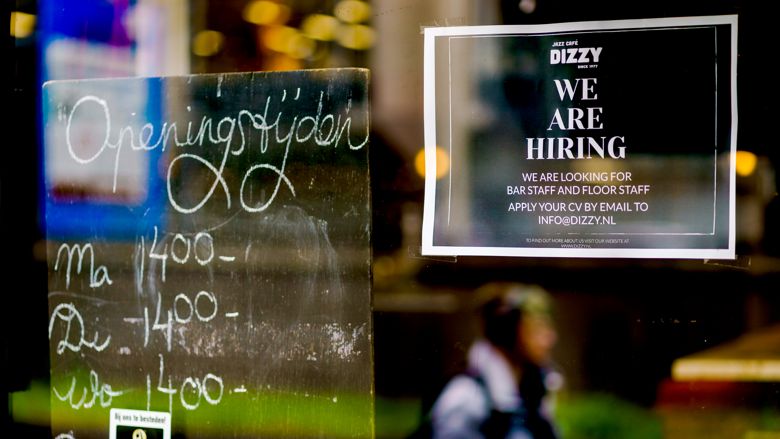 "Openingstijden
Ma 1400-
Di -1400-
Wo 1400-
Bij ons te bestellen!
JAZZ CAFÉ
DIZZY
SINCE 1977
WE
ARE
HIRING
WE ARE LOOKING FOR
BAR STAFF AND FLOOR STAFF
APPLY YOUR CV BY EMAIL TO
INFO@DIZZY.NL
TO FIND OUT MORE ABOUT US VISIT OUR WEBSITE AT
WWW.DIZZY.NL